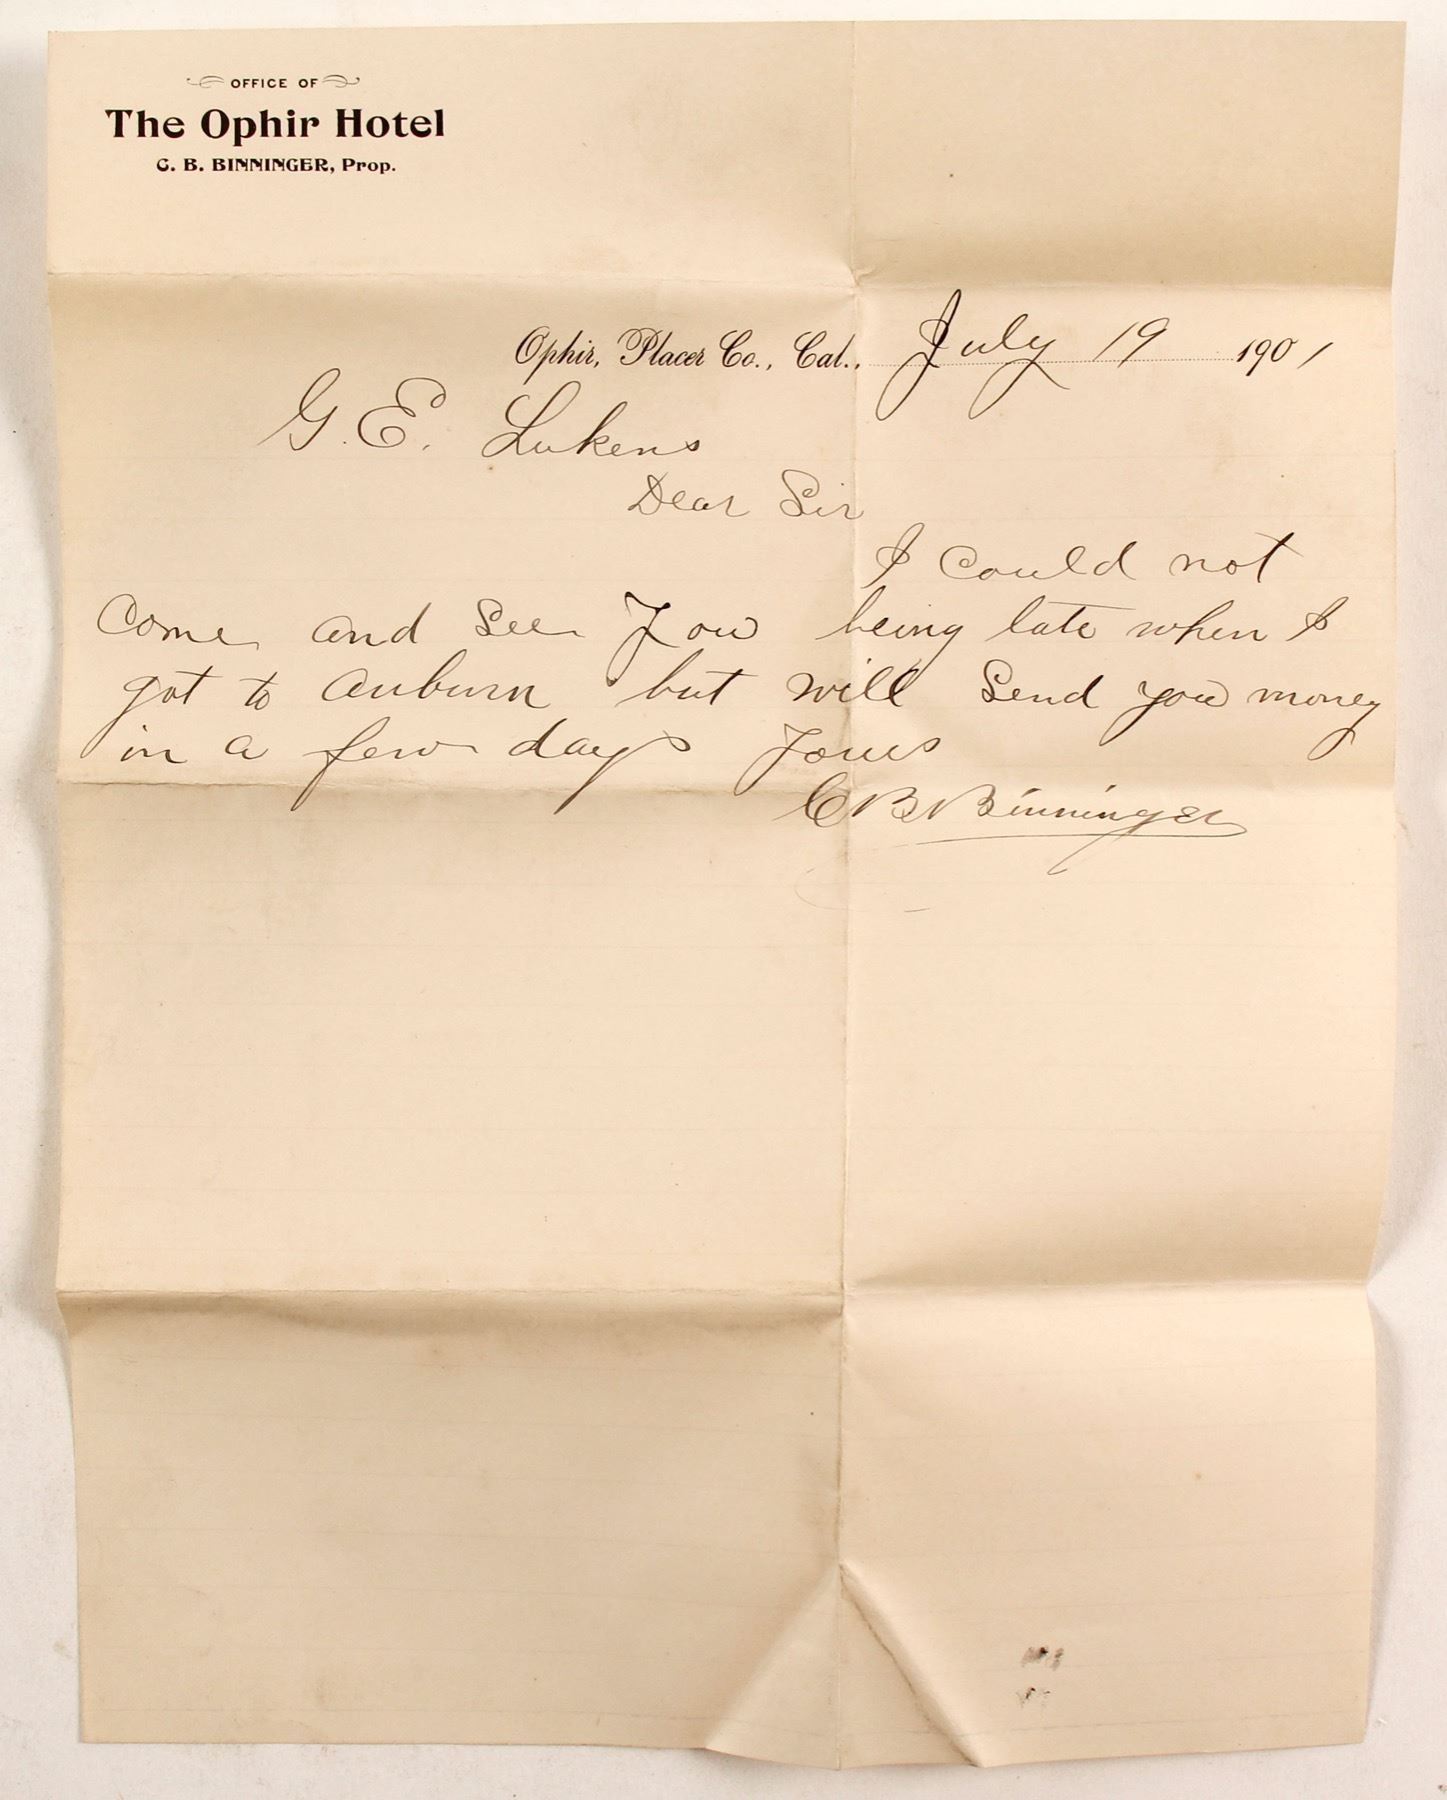 OFFICE OF
The Ophir Hotel
C. B. BINNINGER, Prop.
Ophir, Placer Co., Cal., July 19 1901
G. E. Lukens
Dear Sir
I could not
Come and See You being late when I
got to auburn but will Send you money
in a few days Yours
C B Binninger